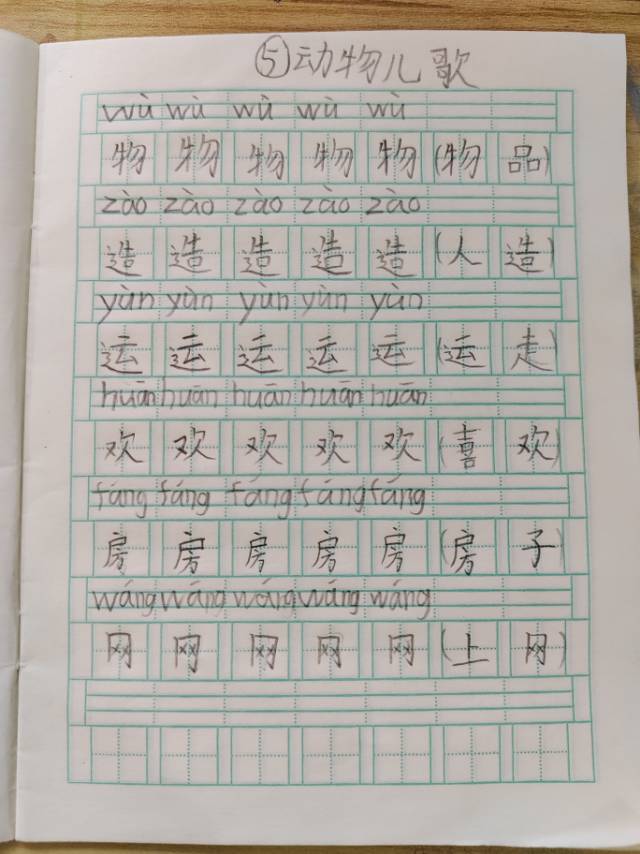 ⑤动物儿歌
wù wù wù wù wù
物 物 物 物 物 (物 品)
zào zào zào zào zào
造 造 造 造 造 (人 造)
yùn yùn yùn yùn yùn
运 运 运 运 运 (运 走)
huān huān huān huān huān
欢 欢 欢 欢 欢 (喜 欢)
fáng fáng fáng fáng fáng
房 房 房 房 房 (房 子)
wáng wáng wáng wáng wáng
网 网 网 网 网 (上 网)